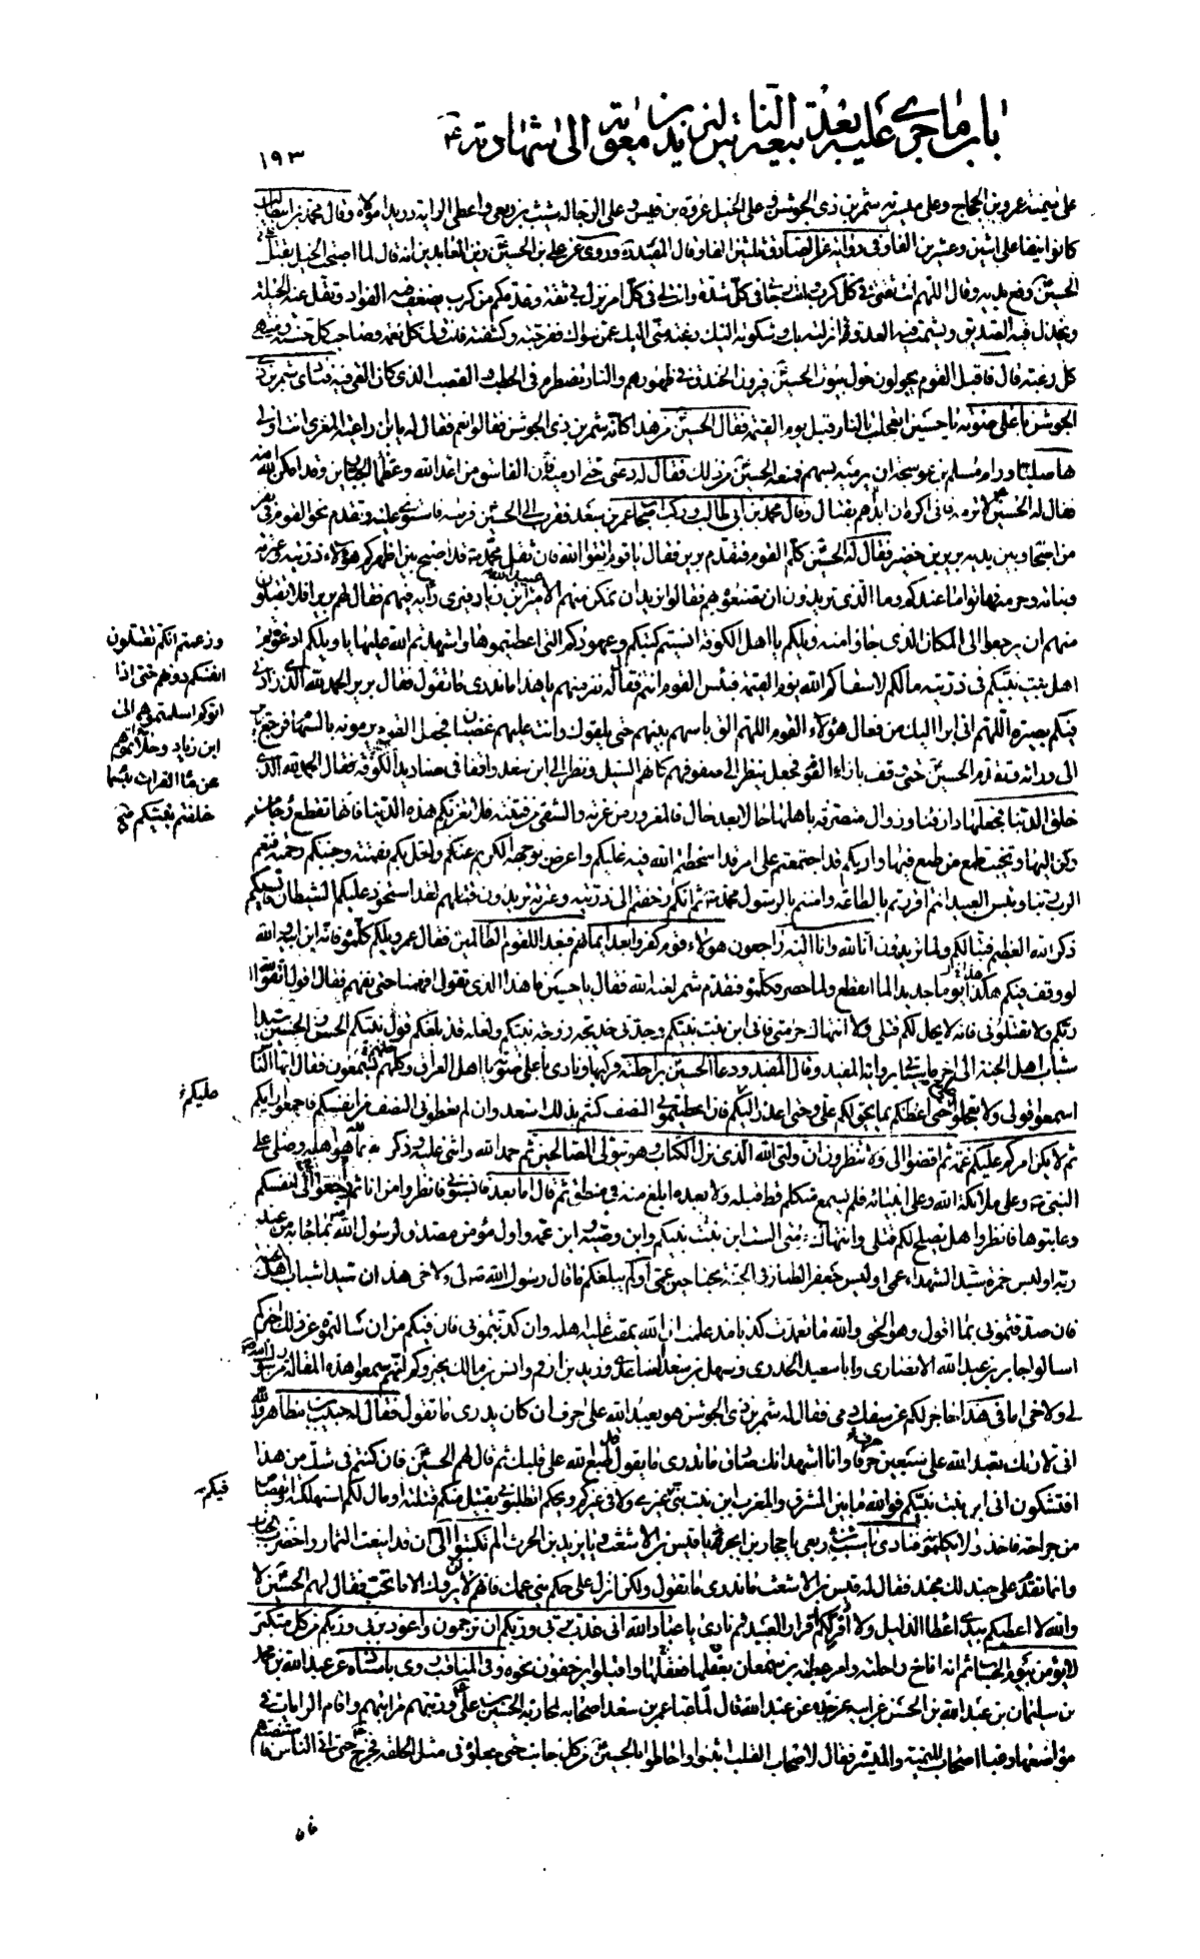 باب ماجرى عليه بعد بيعة الناس ليزيد بن معوية الى شهادته
١٩٣
على ميمنته عمرو بن الحجاج وعلى ميسرته شمر بن ذى الجوشن وعلى الخيل عروة بن قيس وعلى الرجالة شبث بن ربعى واعطى الراية دريدا مولاه وقال محمد بن ابيطالب
كانوا اثنين وعشرين الفا وفى رواية عن الصادق ثلثين الفا وقال المفيد وروى عن على بن الحسين زين العابدين انه قال لما اصبحت الخيل تقبل على
الحسين رفع يديه وقال اللهم انت ثقتى فى كل كرب وانت رجائى فى كل شدة وانت لى فى كل امر نزل بى ثقة وعدة كم من كرب يضعف عنه الفؤاد وتقل فيه الحيلة
ويخذل فيه الصديق ويشمت فيه العدو انزلته بك وشكوته اليك رغبة منى اليك عمن سواك ففرجته وكشفته فانت ولى كل نعمة وصاحب كل حسنة ومنتهى
كل رغبة قال فاقبل القوم يجولون حول بيوت الحسين فيرون الخندق فى ظهورهم والنار تضطرم فى الحطب والقصب الذى كان القى فيه فنادى شمر بن ذى
الجوشن باعلى صوته يا حسين اتعجلت بالنار قبل يوم القيمة فقال الحسين من هذا كانه شمر بن ذى الجوشن فقالوا نعم فقال له يا ابن راعية المعزى انت اولى
بها صليا ورام مسلم بن عوسجة ان يرميه بسهم فمنعه الحسين من ذلك فقال له دعنى حتى ارميه فان الفاسق من اعداء الله وعظماء الجبارين وقد امكن الله منه
فقال له الحسين لا ترمه فانى اكره ان ابدأهم بقتال وقال محمد بن ابى طالب وركب اصحاب عمر بن سعد فقرب الى الحسين فرسه فاستوى عليه وتقدم نحو القوم فى نفر
من اصحابه وبين يديه برير بن خضير فقال له الحسين كلم القوم فتقدم برير فقال يا قوم اتقوا الله فان ثقل محمد قد اصبح بين اظهركم هؤلاء ذريته وعترته
وبناته وحرمه فهاتوا ما عندكم وما الذى تريدون ان تصنعوه بهم فقالوا نريد ان نمكن منهم الامير عبيد الله بن زياد فيرى رايه فيهم فقال لهم برير افلا تقبلون
منهم ان يرجعوا الى المكان الذى جاؤا منه ويلكم يا اهل الكوفة انسيتم كتبكم وعهودكم التى اعطيتموها واشهدتم الله عليها يا ويلكم ادعوتم
اهل بيت نبيكم وزعمتم انكم تقتلون
انفسكم دونهم حتى اذا
اتوكم اسلمتموهم الى
ابن زياد وحلأتموهم
عن ماء الفرات بئسما
خلفتم نبيكم فى
ذريته مالكم لا سقاكم الله يوم القيمة فبئس القوم انتم فقال له نفر منهم يا هذا ما ندرى ما تقول فقال برير الحمد لله الذى زادنى
فيكم بصيرة اللهم انى ابرا اليك من فعال هؤلاء القوم اللهم الق باسهم بينهم حتى يلقوك وانت عليهم غضبان فجعل القوم يرمونه بالسهام فرجع
الى ورائه وتقدم الحسين حتى وقف بازاء القوم فجعل ينظر الى صفوفهم كانهم السيل ونظر الى ابن سعد واقفا فى صناديد الكوفة فقال الحمد لله الذى
خلق الدنيا فجعلها دار فناء وزوال متصرفة باهلها حالا بعد حال فالمغرور من غرته والشقى من فتنته فلا تغرنكم هذه الدنيا فانها تقطع رجاء من
ركن اليها وتخيب طمع من طمع فيها واريكم قد اجتمعتم على امر قد اسخطتم الله فيه عليكم واعرض بوجهه الكريم عنكم واحل بكم نقمته وجنبكم رحمته فنعم
الرب ربنا وبئس العبيد انتم اقررتم بالطاعة وامنتم بالرسول محمد ثم انكم زحفتم الى ذريته وعترته تريدون قتلهم لقد استحوذ عليكم الشيطان فانسيكم
ذكر الله العظيم فتبا لكم ولما تريدون انا لله وانا اليه راجعون هؤلاء قوم كفروا بعد ايمانهم فبعدا للقوم الظالمين فقال عمر ويلكم كلموه فانه ابن ابيه والله
لو وقف فيكم هكذا يوما جديدا لما انقطع ولما حصر فكلموه فتقدم شمر لعنه الله فقال يا حسين ما هذا الذى تقول افهمنا حتى نفهم فقال اقول اتقوا الله
ربكم ولا تقتلونى فانه لا يحل لكم قتلى ولا انتهاك حرمتى فانى ابن بنت نبيكم وجدتى خديجة زوجة نبيكم ولعله قد بلغكم قول نبيكم الحسن والحسين سيدا
شباب اهل الجنة الى اخر ما سياتى برواية المفيد وقال المفيد ودعا الحسين براحلته فركبها ونادى باعلى صوته يا اهل العراق وكلهم يسمعون فقال ايها الناس
اسمعوا قولى ولا تعجلوا حتى اعظكم بما يحق لكم على وحتى اعذر عليكم فان اعطيتمونى النصف كنتم بذلك اسعد وان لم تعطونى النصف من انفسكم فاجمعوا رايكم
ثم لا يكن امركم عليكم غمة ثم اقضوا الى ولا تنظرون ان وليى الله الذى نزل الكتاب وهو يتولى الصالحين ثم حمد الله واثنى عليه وذكر الله بما هو اهله وصلى على
النبى وعلى ملائكة الله وعلى انبيائه فلم يسمع متكلم قط قبله ولا بعده ابلغ منه فى منطق ثم قال اما بعد فانسبونى فانظروا من انا ثم راجعوا الى انفسكم
وعاتبوها فانظروا هل يصلح لكم قتلى وانتهاك حرمتى الست ابن بنت نبيكم وابن وصيه وابن عمه واول مؤمن مصدق لرسول الله بما جاء به من عند
ربه اوليس حمزة سيد الشهداء عمى اوليس جعفر الطيار فى الجنة بجناحين عمى اولم يبلغكم ما قال رسول الله لى ولاخى هذان سيدا شباب اهل الجنة
فان صدقتمونى بما اقول وهو الحق والله ما تعمدت كذبا منذ علمت ان الله يمقت عليه اهله وان كذبتمونى فان فيكم من ان سالتموه عن ذلك اخبركم
اسالوا جابر بن عبد الله الانصارى وابا سعيد الخدرى وسهل بن سعد الساعدى وزيد بن ارقم وانس بن مالك يخبروكم انهم سمعوا هذه المقالة من رسول الله
لى ولاخى اما فى هذا حاجز لكم عن سفك دمى فقال له شمر بن ذى الجوشن هو يعبد الله على حرف ان كان يدرى ما تقول فقال له حبيب بن مظاهر والله
انى لاراك تعبد الله على سبعين حرفا وانا اشهد انك صادق ما تدرى ما يقول قد طبع الله على قلبك ثم قال لهم الحسين فان كنتم فى شك من هذا
افتشكون انى ابن بنت نبيكم فوالله ما بين المشرق والمغرب ابن بنت نبى غيرى فيكم ولا فى غيركم ويحكم اتطلبونى بقتيل منكم قتلته او مال لكم استهلكته او بقصاص
من جراحة فاخذوا لا يكلمونه فنادى يا شبث بن ربعى يا حجار بن ابجر يا قيس بن الاشعث يا يزيد بن الحرث الم تكتبوا الى ان قد اينعت الثمار واخضر الجناب
وانما تقدم على جند لك مجند فقال له قيس بن الاشعث ما ندرى ما تقول ولكن انزل على حكم بنى عمك فانهم لن يروك الا ما تحب فقال لهم الحسين لا
والله لا اعطيكم بيدى اعطاء الذليل ولا اقر لكم اقرار العبيد ثم نادى يا عباد الله انى عذت بربى وربكم ان ترجمون واعوذ بربى وربكم من كل متكبر
لا يؤمن بيوم الحساب ثم انه اناخ راحلته وامر عقبة بن سمعان بعقلها فعقلها واقبلوا يزحفون نحوه وفى المناقب روى باسناده عن عبد الله بن محمد
بن سليمان بن عبد الله بن الحسن عن ابيه عن جده عن عبد الله قال لما عبا عمر بن سعد اصحابه لمحاربة الحسين بن على ورتبهم مراتبهم واقام الرايات فى
مواضعها وعبا اصحاب الميمنة والميسرة فقال لاصحاب القلب اثبتوا واحاطوا بالحسين من كل جانب حتى جعلوه فى مثل الحلقة فخرج حتى اتى الناس فاستنصتهم
فابوا